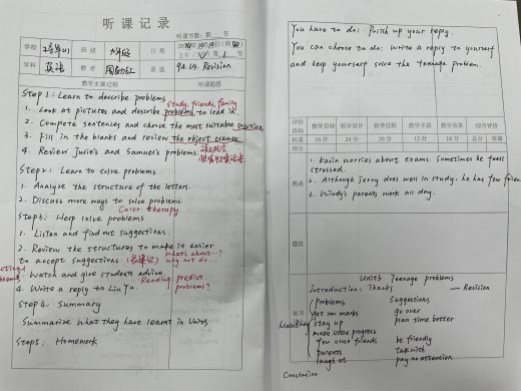 听课记录
听课节数: 第 节
学校
班级
日期
学科 英语 教者 课题 9A U3 Revision
教学主要过程 听课随感
Step 1: Learn to describe problems
study, friends, family
1. Look at pictures and describe problems to
2. Compete sentences and choose the most suitable solution
3. Fill in the blanks and review the object clause
4. Review Julie's and Samuel's problems
Step 2: Learn to solve problems
1. Analyse the structure of the letters.
2. Discuss more ways to solve problems
Color therapy
Step 3: Help solve problems
1. Listen and find out suggestions.
2. Review the structures to make it easier
to accept suggestions. what about...?
why not do...
3. Watch and give students advice
Reading predict
4. Write a reply to Liu Tu. problems?
Step 4: Summary
Summarise what they have learnt in
Step 5: Homework
You have to do: Polish up your reply
You can choose to do: Write a reply to yourself
and help yourself solve the teenage problem.
评价指标 教学目标 教学设计 教学过程 教学手段 教学效果 综合评价
总分 等第
得分
1. worries about exams. Sometimes he feels
stressed.
2. Although Jerry does well in study, he has few friends
3. Windy's parents work all day.
建议
板书
Unit3 Teenage problems
Introduction: Thanks — Revision
Problems Suggestions
get low marks go over
stay up plan time better
make little progress
few close friends be friendly
parents talk with
laugh at pay no attention
Conclusion